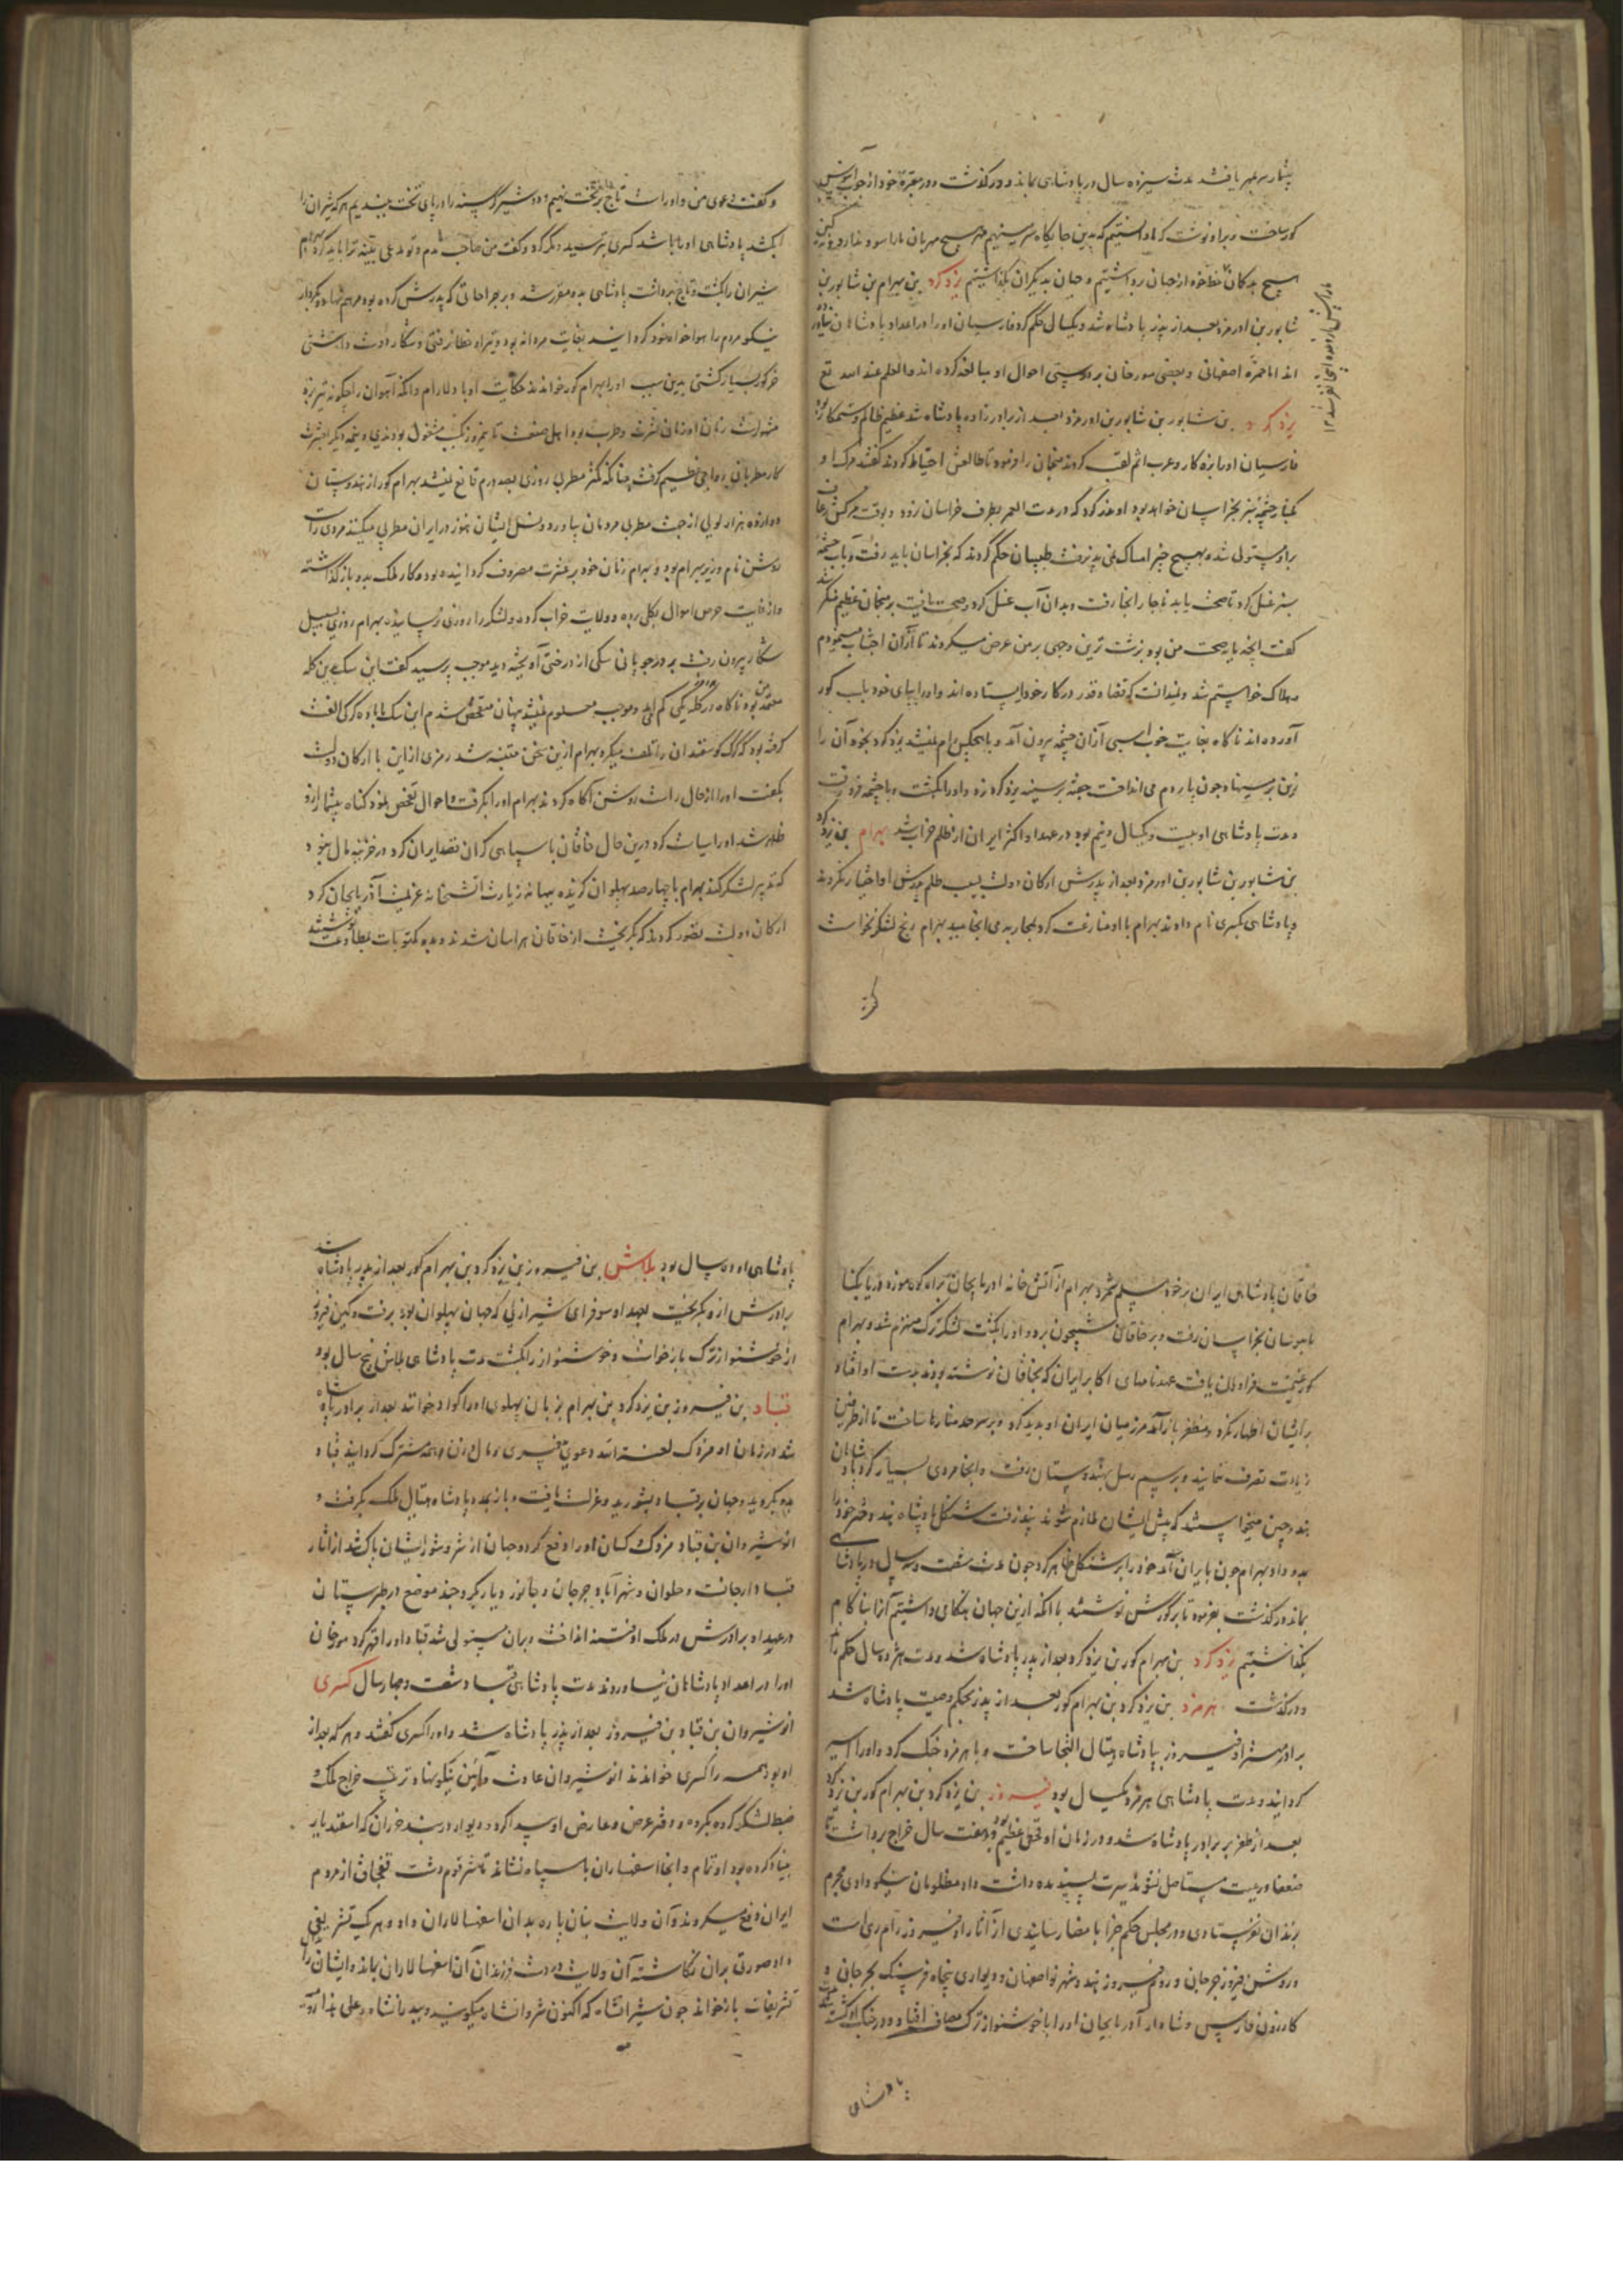 بیشمار بر عهر یافتند مدت سیزده سال در پادشاهی بماند و درگذشت و در مقبرهٔ خود از چوب آبنوس
گور ساخت و بر او نوشت که ما دانستیم که بدین جایگاه می رسیم هیچ مهربان ما را سود ندارد و نه کین
هیچ بدگمان خط خود از جهان برداشتیم و جهان بدیگران بگذاشتیم یزدگرد بن بهرام بن شاپور بن
شاپور بن اورمزد بعد از پدر پادشاه شد و یکسال حکم کرد فارسیان او را در اعداد پادشاهان نیاورده
اند اما حمزه اصفهانی و بعضی مورخان بر درستی احوال او مبالغه کرده اند والعلم عند الله تع
یزدکرد بن شاپور بن شاپور بن اورمزد بعد از برادرزاده پادشاه شد عظیم ظالم و ستمکار بود
فارسیان او را بزه کار و عرب اثم لقب کردند منجمان را فرمود تا طالعش احتیاط کردند گفتند مرک او
کنار چشمه سبز بخراسان خواهد بود او عهد کرد که در مدت العمر بطرف خراسان نرود و بوقت مرکش رعاف
بر او مستولی شد و بهیچ چیز امساک نمی پذیرفت طبیبان حکم کردند که بخراسان باید رفت و بآب چشمهٔ
سبز غسل کرد تا صحت یابد ناچار آنجا رفت و بدان آب غسل کرد و صحت یافت بر منجمان عظیم منکر شد
گفت آنچه مایه صحت من بود بزشت ترین وجهی بر من عرض میکردند تا از آن اجتناب مینمودم
و هلاک خواستم شد و ندانست که قضا و قدر در کار خود ایستاده اند و او را بپای خود بلب گور
آورده اند ناکاه بغایت خوب اسبی از آن چشمه بیرون آمد و با هیچکس رام نمیشد یزدکرد بخود آن را
زین بر می نهاد چون پاردم می انداخت جفته بر سینه یزدکرد زد و او را بکشت و با چشمه فرو رفت
مدت پادشاهی او بیست و یکسال و نیم بود در عهد او اکثر ایران از ظلم خراب شد بهرام بن یزدکرد
بن شاپور بن شاپور بن اورمزد بعد از پدرش ارکان دولت بسبب ظلم پدرش او را اختیار نکردند
و پادشاهی بکسری نام دادند بهرام با او منازعت کرد بمحاربه می انجامید بهرام رنج لشکر نخواست
و گفت دعوی من و او راست تاج بر تخت نهیم و دو شیر گرسنه را در پای تخت بندیم هر که شیران را
بکشد پادشاهی او را باشد کسری بترسید و مکر کرد و گفت من صاحب یدم و تو مدعی بینه ترا باید کرد بهرام
شیران را بکشت و تاج برداشت پادشاهی بدو مقرر شد و بر جراحاتی که پدرش کرده بود مرهم نهاد و بکردار
نیکو مردم را هواخواه خود کردانید بغایت مردانه بود و تیر او خطا نرفتی و شکار دوست داشتی
خر گور بسیار کشتی بدین سبب او را بهرام گور خواندند حکایت او با دلارام و آنکه آهوان را چکونه تیر زد
مشهورست زمان او زمان عشرت و طرب بود اهل صنعت تا نیمروز بکسب مشغول بودندی و نیمه دیگر بعشرت
کار مطربان رواجی عظیم گرفت چنانکه کمتر مطربی روزی بصد درم قانع نمیشد بهرام گور از هندوستان
دوازده هزار لولی از جهت مطربی مردمان بیاورد و نسل ایشان هنوز در ایران مطربی میکنند مردی راست
روشن نام وزیر بهرام بود و بهرام زمان خود بر عشرت مصروف کردانیده بود و کار ملک بدو باز گذاشته
و از غایت حرص اموال بکلی برده و ولایت خراب کرده و لشکر را روزی نرسانیده بهرام روزی بسبیل
شکار بیرون رفت بر در چوپانی سگی از درختی آویخته دید موجب پرسید گفت این سگ برین گله
معتمد من بود ناگاه در گله یکی کم آمد و موجب معلوم نمیشد پنهان متفحص شدم این سگ با ماده گرگی الفت
گرفته بود گرگ گوسفندان را تلف میکرد بهرام ازین سخن متنبه شد رمزی از این با ارکان دولت
بگفت او را از حال راست روشن آگاه کردند بهرام او را بگرفت و احوال تفحص نمود گناه بیشمار از او
ظاهر شد او را سیاست کرد درین حال خاقان با سپاهی گران قصد ایران کرد در خزینه مال نبود
که تدبیر لشکر کند بهرام با چهارصد پهلوان گزیده ببهانه زیارت آتشخانه عزیمت آذربایجان کرد
ارکان دولت تصور کردند که بگریخت از خاقان هراسان شدند و بدو مکتوبات بمطاوعت نوشتند
خاقان پادشاهی ایران بر خود مسلم شمرد بهرام از آتش خانه آذربایجان براه کوه موزه دریا بکنا
با موسان بخراسان رفت و بر خاقان شبیخون برد و او را بکشت لشکر ترک منهزم شد و بهرام
گور غنیمت فراوان یافت عهدنامهای اکابر ایران که بخاقان نوشته بودند بدست او افتاد
بر ایشان اظهار نکرد و مظفر باز آمد مرز میان ایران او بدید کرد و بر سرحد منارها ساخت تا از طرفین
زیادت تصرف ننمایند و برسم رسل بهندوستان رفت و آنجا مردی بسیار کرد پادشاهان
هند و چین میخواستند که پیش ایشان ملازم شوند نپذیرفت شنگل پادشاه هند دختر خود را
بدو داد بهرام چون بایران آمد خود را بر شنگل ظاهر کرد چون مدت شصت و سه سال در پادشاهی
بماند درگذشت بفرمود تا بر گورش نوشتند با آنکه ازین جهان همه کامی داشتیم آنرا بناکام
بگذاشتیم یزدکرد بن بهرام گور بن یزدکرد بعد از پدر پادشاه شد و مدت هژده سال حکم راند
و درگذشت هرمزد بن یزدکرد بن بهرام گور بعد از پدر بحکم وصیت پادشاه شد
برادر مهتر او فیروز بپادشاه هیتال التجا ساخت و با هرمزد جنگ کرد و او را اسیر
کردانید و مدت پادشاهی هرمزد یکسال بود فیروز بن یزدکرد بن بهرام گور بن یزدکرد
بعد از ظفر بر برادر پادشاه شد و در زمان او قحطی عظیم بود و هفت سال خراج برداشت تا
ضعفا و رعیت مستاصل نشوند سیرت پسندیده داشت داد مظلومان نیکو دادی مجرم
بزندان نفرستادی و در مجلس حکم جزا بامضا رسانیدی از آثار او فیروز رام ری است
و روشن فیروز جرجان و رام فیروز هند و شهر نو اصفهان و دیواری پنجاه فرسنگ بجرجان و
کازرون فارس و شاد آذربایجان او را با خوشنواز ترک مصاف افتاد و در جنگ او کشته شد مدت
پادشاهی
پادشاهی او ده سال بود بلاش بن فیروز بن یزدکرد بن بهرام گور بعد از پدر پادشاه شد
برادرش ازو بگریخت بعهد او سوفرای شیرازی که جهان پهلوان بود برفت و کین فیروز
از خوشنواز ترک بازخواست و خوشنواز را بکشت مدت پادشاهی بلاش پنج سال بود
قباد بن فیروز بن یزدکرد بن بهرام بزبان پهلوی او را کواد خوانند بعد از برادر پادشاه
شد در زمان او مزدک لعنه الله دعوی پیغمبری و مال و زن بر همه مشترک کردانید قباد
بدو بگروید و جهان بر قباد بشورید و عزلت یافت و باز بمدد پادشاه هیتال ملک بگرفت و
انوشیروان بن قباد مزدک و کسان او را دفع کرد و جهان از شر و شور ایشان پاک شد از آثار
قباد ارجانست و حلوان و شهرآباد جرجان و خانور و دیاربکر و چند موضع در طبرستان
در عهد او برادرش در ملک او فتنه انداخت و بر آن مستولی شد قباد او را قهر کرد مورخان
او را در اعداد پادشاهان نیاوردند مدت پادشاهی قباد شصت و چهار سال کسری
انوشیروان بن قباد بن فیروز بعد از پدر پادشاه شد و او را کسری گفتند و هر که بعد از
او بود همه را کسری خواندند انوشیروان عادت و آئین نیکو نهاد و ترتیب خراج ملک و
ضبط لشکر کرده بکرد و دفتر عرض و عارض او پیدا کرد و دیوار دربند خزران که اسفندیار
بنیاد کرده بود او تمام و آنجا اسفهساران با سپاه نشاند تا شر قوم دشت قبچاق از مردم
ایران دفع میکردند و آن ولایت بنان پاره بدان اسفهسالاران داد و هر یک تشریفی
داد صورتی بر آن نگاشته آن ولایت در دست فرزندان آن اسفهسالاران بماند و ایشان را
تشریفات بازخواند چون شیرانشاه که اکنون شروانشاه میگویند و پیدانشاه و علی هذا آورده